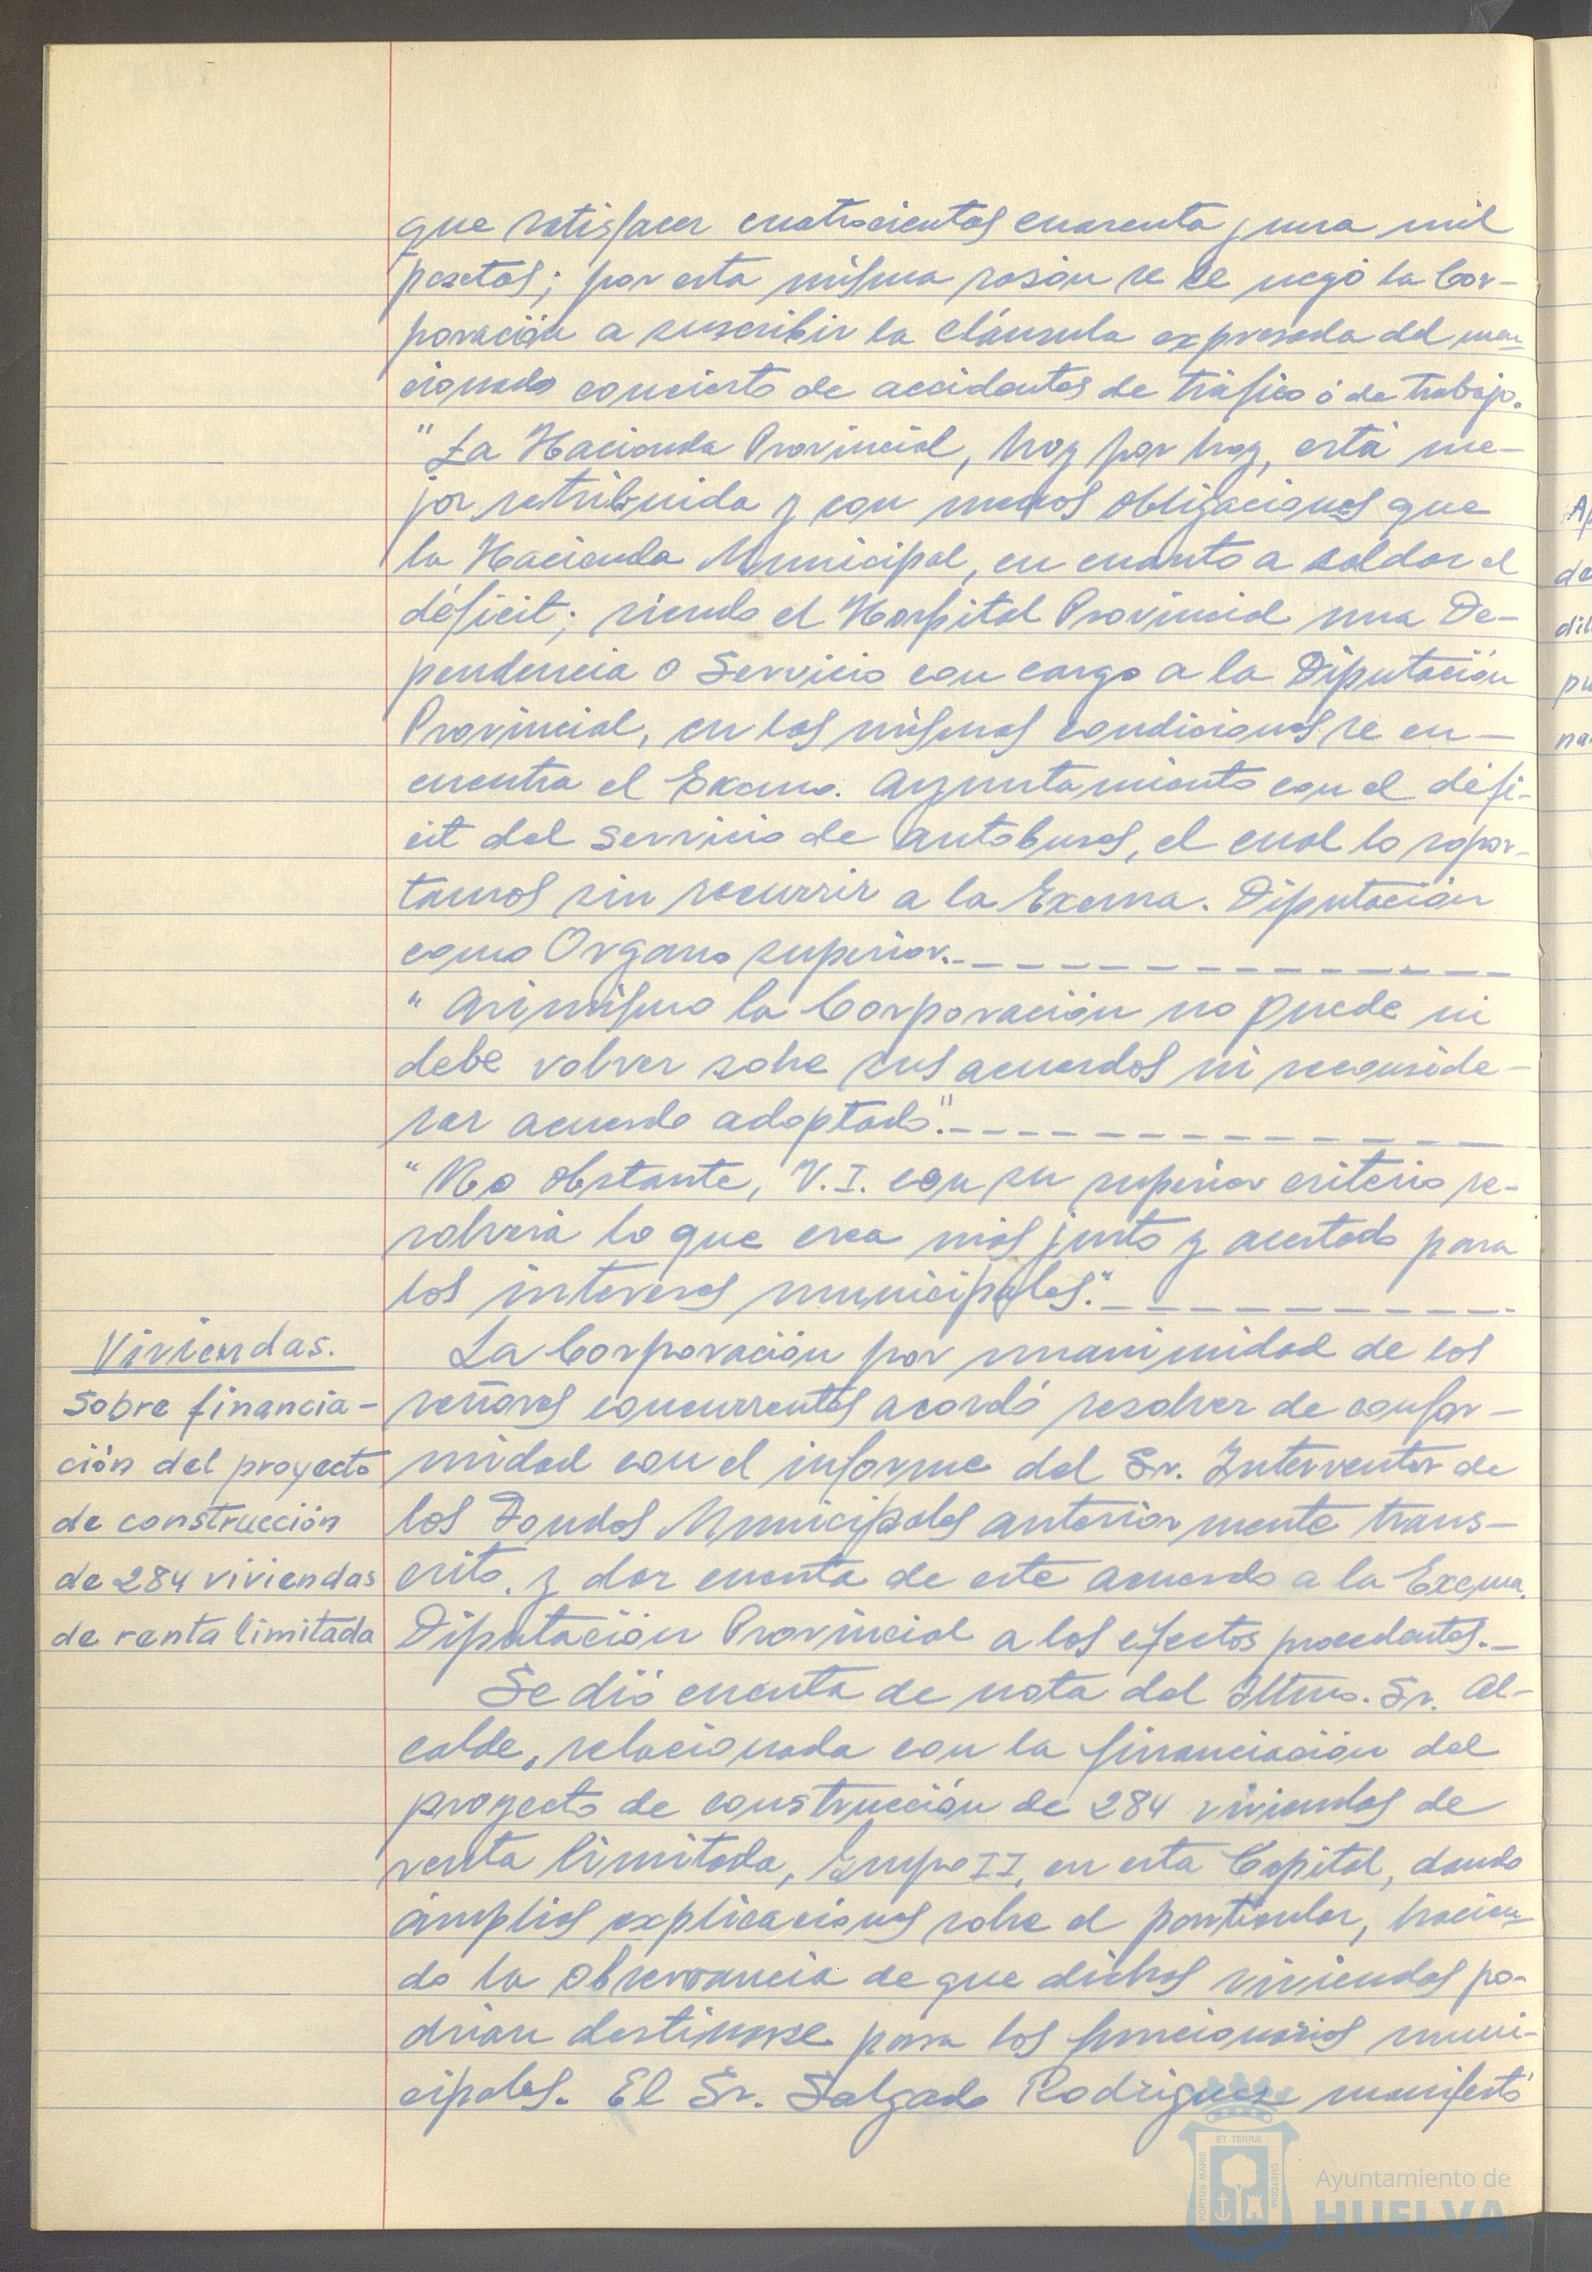 que satisfacer cuatrocientas cuarenta y una mil
pesetas; por esta misma rasón se le negó la Cor-
poración a suscribir la cláusula expresada del men-
cionado concierto de accidentes de tráfico ó de trabajo.
"La Hacienda Provincial, hoy por hoy, está me-
jor retribuida y con menos obligaciones que
la Hacienda Municipal, en cuanto a saldar el
déficit; siendo el Hospital Provincial una De-
pendencia o Servicio con cargo a la Diputación
Provincial, en las mismas condiciones se en-
cuentra el Excmo. Ayuntamiento con el défi-
cit del servicio de autobuses, el cual lo sopor-
tamos sin recurrir a la Excma. Diputación
como Organo superior.-
"Asimismo la Corporación no puede ni
debe volver sobre sus acuerdos ni reconside-
rar acuerdo adoptado".-
"No obstante, V.I. con su superior criterio re-
solverá lo que crea más justo y acertado para
los intereses municipales."-
La Corporación por unanimidad de los
señores concurrentes acordó resolver de confor-
midad con el informe del Sr. Interventor de
los Fondos Municipales anteriormente trans-
crito, y dar cuenta de este acuerdo a la Excma.
Diputación Provincial a los efectos procedentes.-
Viviendas.
Sobre financia-
ción del proyecto
de construcción
de 284 viviendas
de renta limitada
Se dió cuenta de nota del Iltmo. Sr. Al-
calde, relacionada con la financiación del
proyecto de construcción de 284 viviendas de
renta limitada, Grupo II, en esta Capital, dando
ámplias explicaciones sobre el particular, hacien-
do la observancia de que dichas viviendas po-
drían destinarse para los funcionarios muni-
cipales. El Sr. Salgado Rodriguez manifestó
A
de
dil
pu
na
PORTUS MARIS
ET TERRÆ
CUSTODIA
Ayuntamiento de
HUELVA